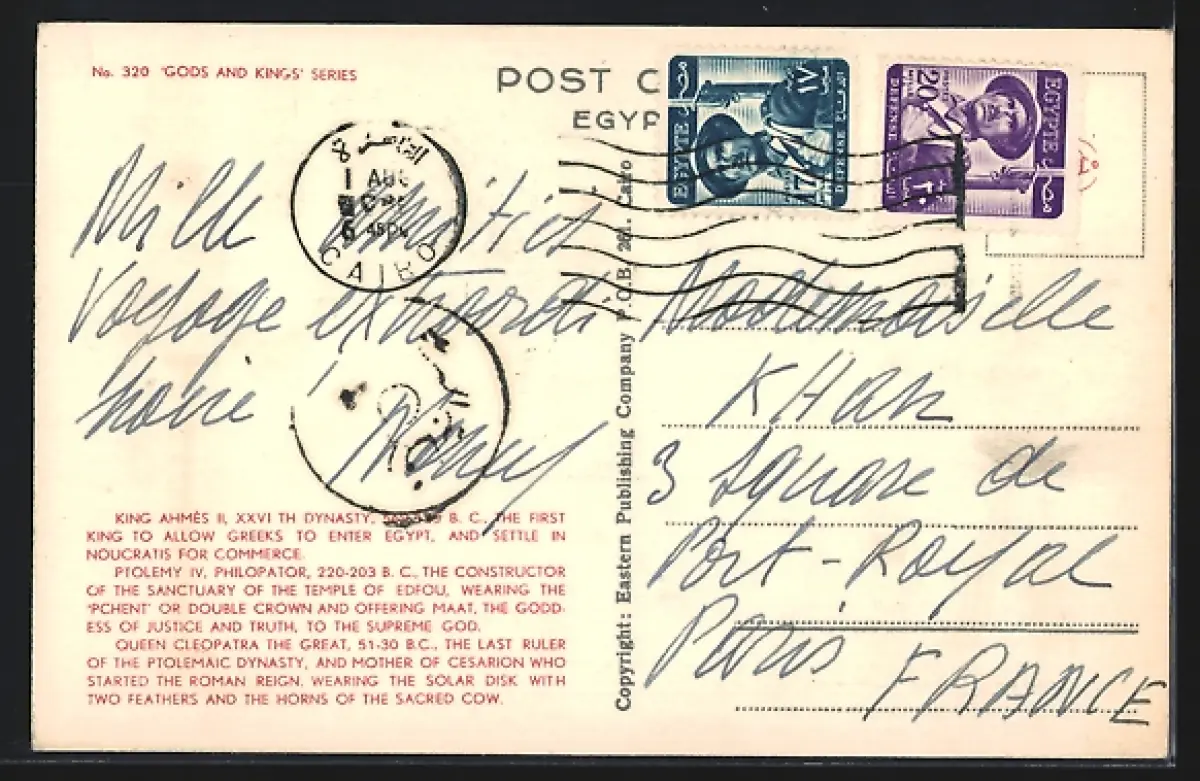 No. 320 'GODS AND KINGS' SERIES
POST C
EGYP
EGYPTE
17
DEFENSE
20
DEFENSE
EGYPTE
مصر
القاهرة
8
1 AUG
CAIRO
Mille amitiés
Voyage extraordi
naire !
Mademoiselle
KHAN
3 Square de
Port-Royal
Paris
FRANCE
KING AHMÈS II, XXVI TH DYNASTY, B. C., THE FIRST
KING TO ALLOW GREEKS TO ENTER EGYPT, AND SETTLE IN
NOUCRATIS FOR COMMERCE.
PTOLEMY IV, PHILOPATOR, 220-203 B. C., THE CONSTRUCTOR
OF THE SANCTUARY OF THE TEMPLE OF EDFOU, WEARING THE
'PCHENT' OR DOUBLE CROWN AND OFFERING MAAT, THE GODD-
ESS OF JUSTICE AND TRUTH, TO THE SUPREME GOD.
QUEEN CLEOPATRA THE GREAT, 51-30 B.C., THE LAST RULER
OF THE PTOLEMAIC DYNASTY, AND MOTHER OF CESARION WHO
STARTED THE ROMAN REIGN. WEARING THE SOLAR DISK WITH
TWO FEATHERS AND THE HORNS OF THE SACRED COW.
Copyright : Eastern Publishing Company P.O.B. Cairo